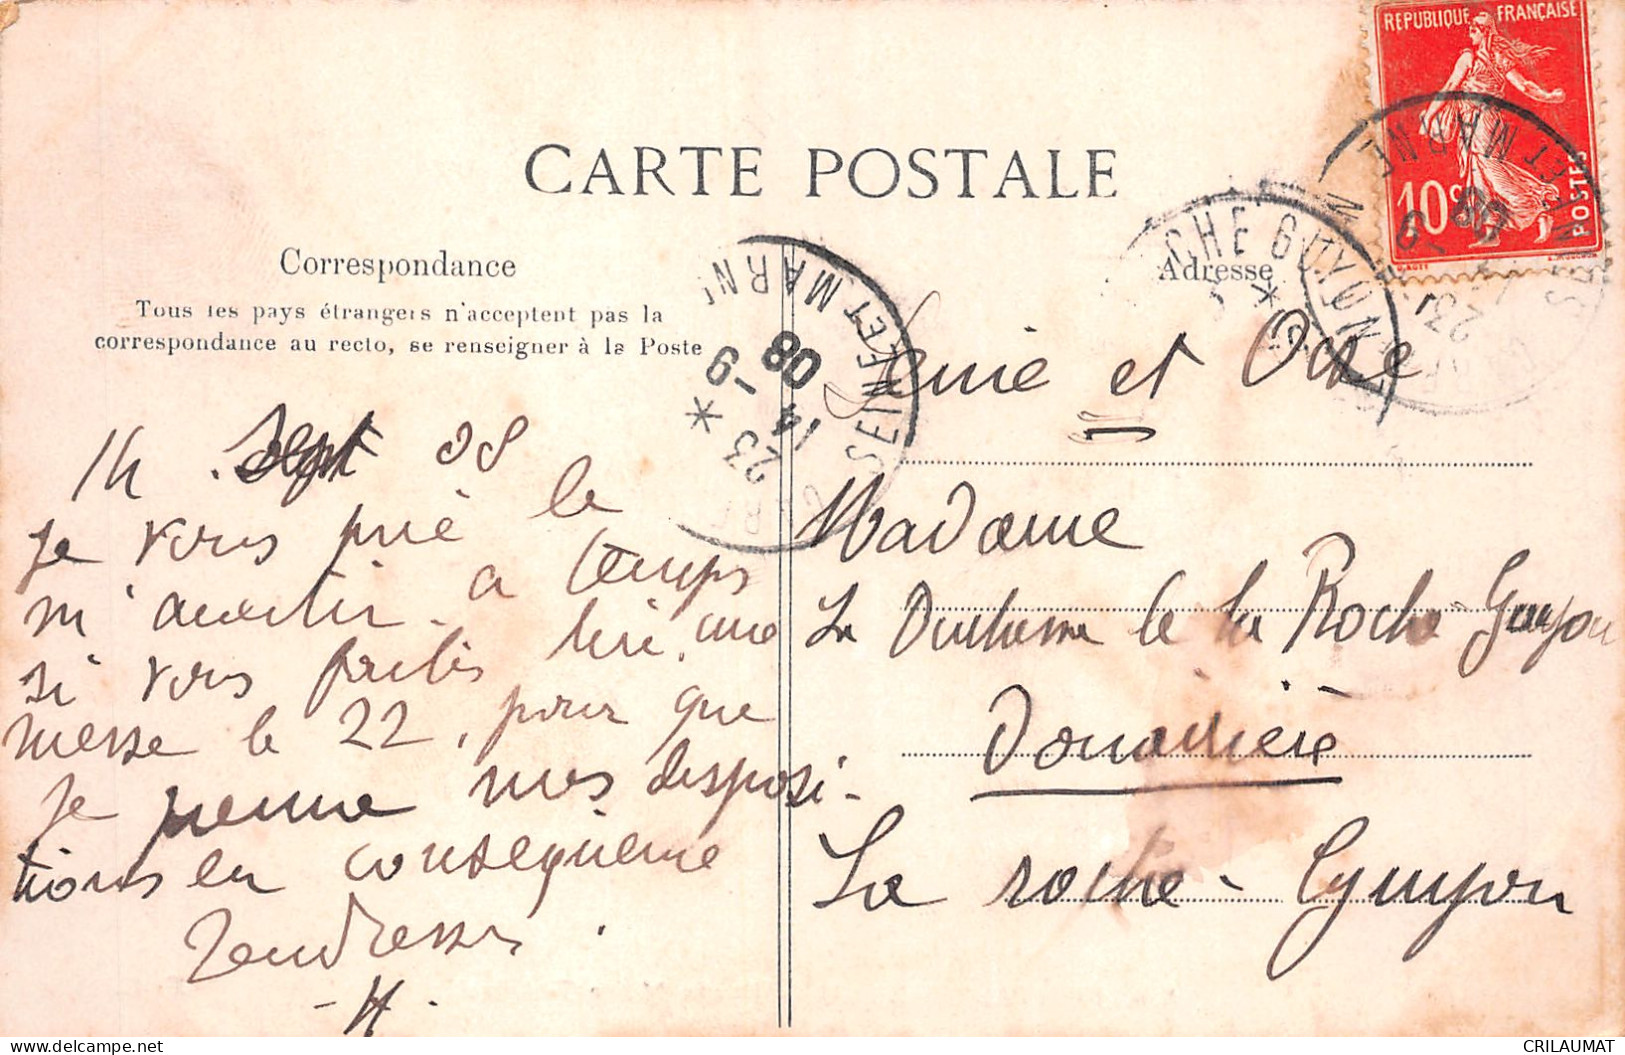 REPUBLIQUE FRANÇAISE
10c
POSTES
CARTE POSTALE
Correspondance
Tous les pays étrangers n'acceptent pas la
correspondance au recto, se renseigner à la Poste
SEINE ET MARNE
23
14 - 9
08
14 Sept 08
Je vous prie de
m'avertir a temps
si vous faites dire une
messe le 22, pour que
Je prenne mes disposi-
tions en conséquence
Tendresses.
- H.
Adresse
CHE GUYON
SEINE ET MARNE
23
- 9
08
Seine et Oise
Madame
La Duchesse de la Roche-Guyon
Douairière
La roche-Guyon
CRILAUMAT